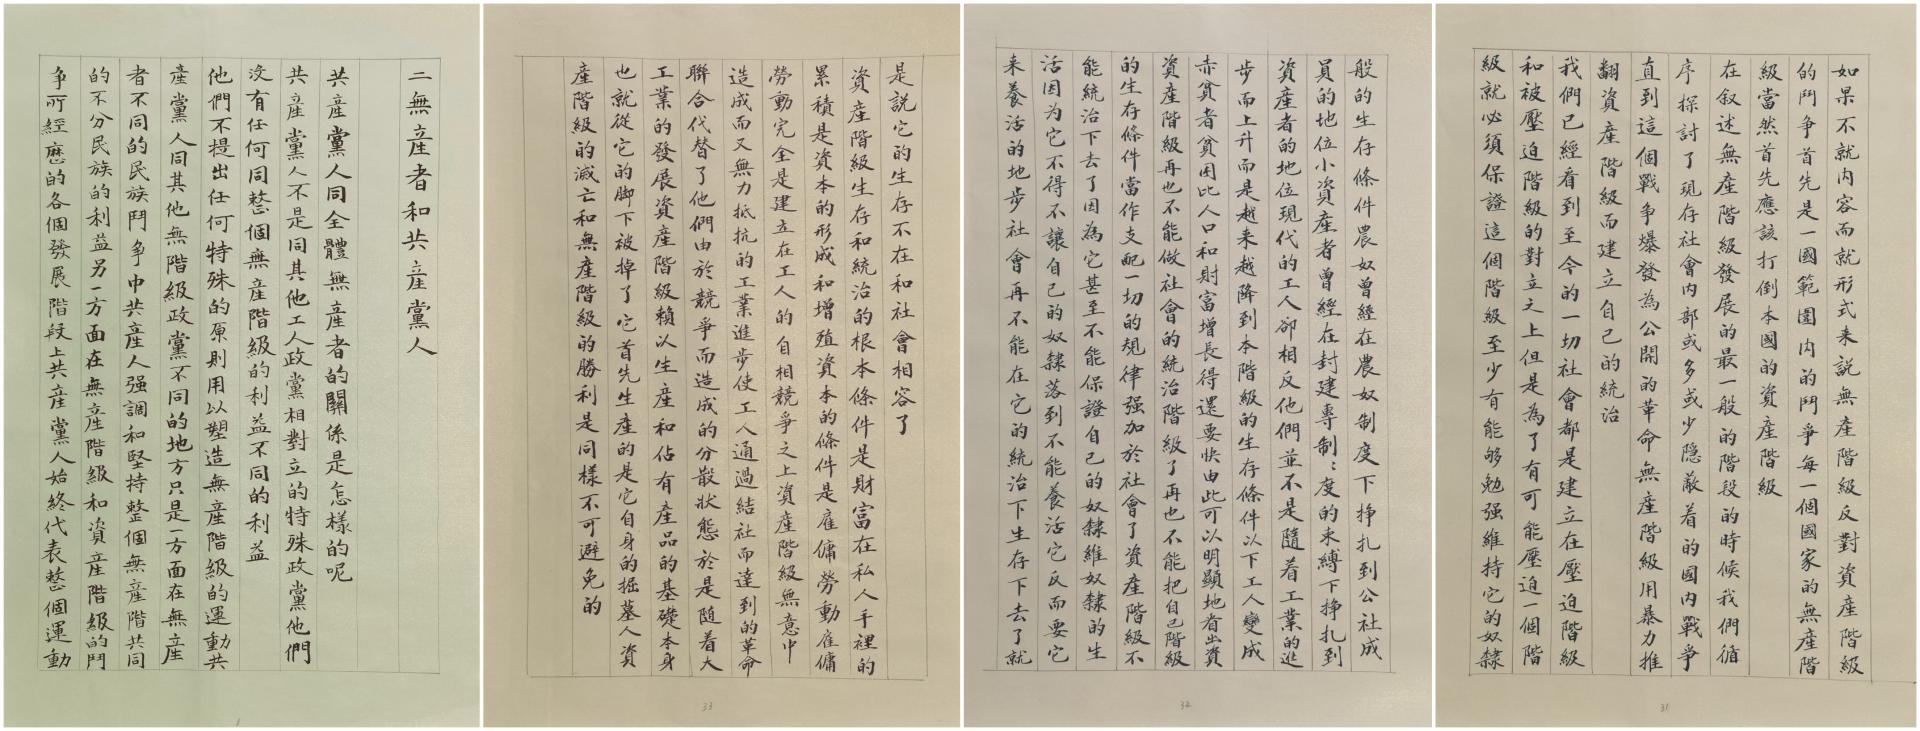 如果不就内容而就形式来説無產階級反對資產階級
的鬥争首先是一國範圍内的鬥爭每一個國家的無產階
級當然首先應該打倒本國的資產階級
在叙述無產階級發展的最一般的階段的時候我們循
序探討了現存社會内部或多或少隱蔽着的國内戰爭
直到這個戰争爆發為公開的革命無產階級用暴力推
翻資產階級而建立自己的統治
我們已經看到至今的一切社會都是建立在壓迫階級
和被壓迫階級的對立之上但是為了有可能壓迫一個階
級就必須保證這個階級至少有能够勉强維持它的奴隸
31
般的生存條件農奴曾經在農奴制度下掙扎到公社成
員的地位小資產者曾經在封建專制:度的束縛下掙扎到
資產者的地位現代的工人卻相反他們並不是隨着工業的進
步而上升而是越来越降到本階級的生存條件以下工人變成
赤貧者貧困比人口和財富增長得還要快由此可以明顯地看出資
資產階級再也不能做社會的統治階級了再也不能把自己階級
的生存條件當作支配一切的規律强加於社會了資產階級不
能統治下去了因為它甚至不能保證自己的奴隸維奴隸的生
活因为它不得不讓自己的奴隸落到不能養活它反而要它
来養活的地步社會再不能在它的統治下生存下去了就
32
是説它的生存不在和社會相容了
資產階級生存和統治的根本條件是財富在私人手裡的
累積是資本的形成和增殖資本的條件是雇傭勞動雇傭
勞動完全是建立在工人的自相競爭之上資產階級無意中
造成而又無力抵抗的工業進步使工人通過結社而達到的革命
聯合代替了他們由於競爭而造成的分散狀態於是随着大
工業的發展資產階級賴以生產和佔有產品的基礎本身
也就從它的脚下被掉了它首先生產的是它自身的掘墓人資
產階級的滅亡和無產階級的勝利是同樣不可避免的
33
二無產者和共產黨人
共產黨人同全體無產者的關係是怎樣的呢
共產黨人不是同其他工人政黨相對立的特殊政黨他們
没有任何同整個無產階級的利益不同的利益
他們不提出任何特殊的原則用以塑造無產階級的運動共
產黨人同其他無階級政黨不同的地方只是一方面在無產
者不同的民族鬥争中共產人强調和堅持整個無產階共同
的不分民族的利益另一方面在無產階級和資產階級的鬥
争所經歷的各個發展階段上共產黨人始終代表整個運動